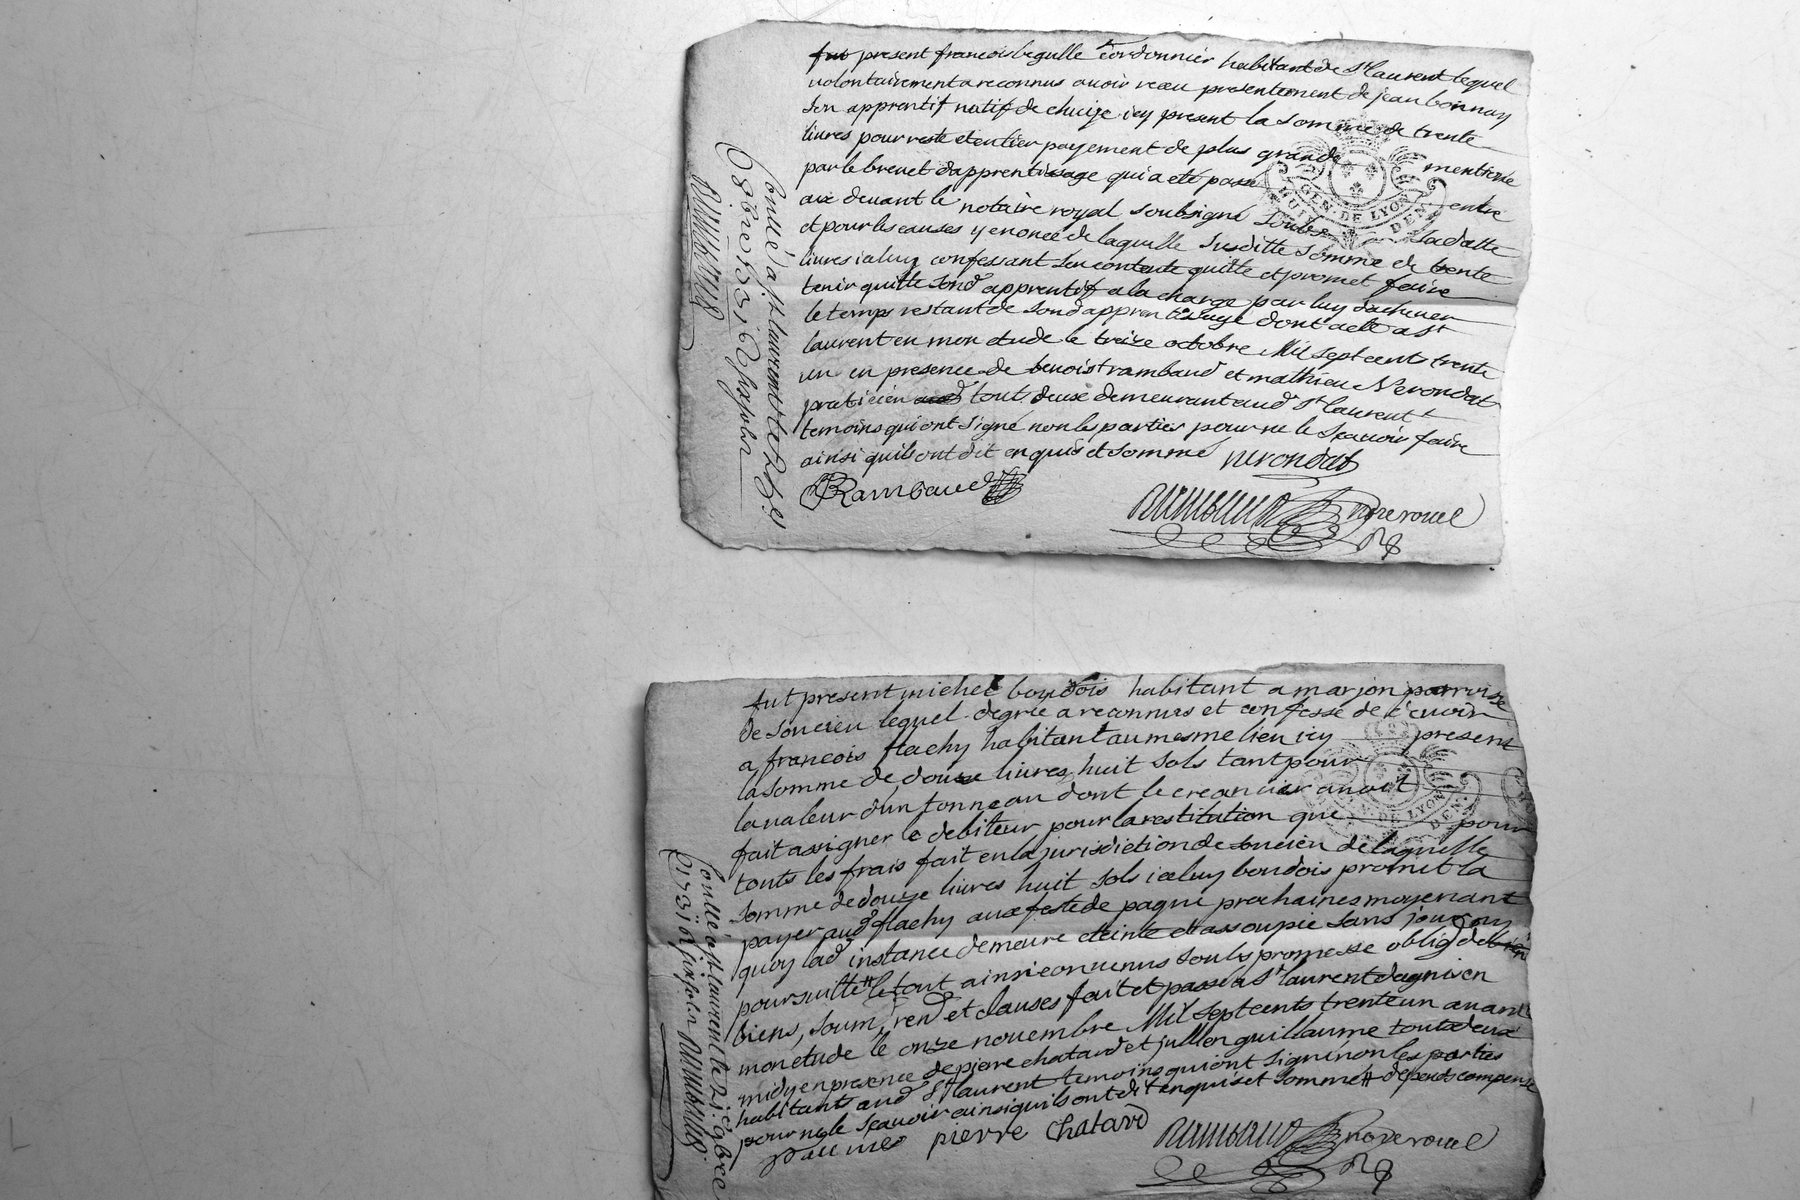 fut present francois begulle cordonnier habitant de St laurent lequel
volontairement a reconnus avoir receu presentement de jean bonnay
son apprentif natif de chuize icy present la somme de trente
livres pour reste et entier payement de plus grande mentionée
par le brevet dapprentissage qui a eté passé entre
aux devant le notaire royal soubsigné soubs sadatte
et pour les causes y enoncé de laquelle susditte somme de trente
livres iceluy confessant sen contente quitte et promet faire
tenir quitte sond apprentif a la charge par luy dachever
le temps restant de sond apprentissage dont acte a St
laurent en mon etude le treize octobre Mil sept cents trente
un en presence de benoist rambaud et mathieu Nerondat
praticien tout deux demeurant aud St laurent
temoins qui ont signé non les parties pour ne le scavoir faire
ainsi quils ont dit enquis et sommé nerondat
BRambaud
no re royal
GEN. DE LYON
Conllé a St laurent le
8bre 1731
fut present michel bourdois habitant a marjon parroisse
de soucieu lequel degrée a reconnus et confessé de devoir
a francois flachy habitant au mesme lieu icy present
la somme de douze livres huit sols tant pour
la valeur dun tonneau dont le creancier avoit
fait assigner le debiteur pour la restitution que pour
touts les frais fait en la jurisdiction de soucieu de laquelle
somme de douze livres huit sols iceluy bourdois promet la
payer aud flachy aux feste de paque prochaines moyenant
quoy lad instance demeure eteinte et assoupie sans jour ny
poursuitte # le tout ainsi convenus soubs promesse oblig de biens
biens, soum, renon et clauses fait et passé a St laurent dagnis en
mon etude le onze novembre Mil sept cents trente un avant
midy en presence de pierre chatard et jullien guillaume touts deux
habitants aud St laurent temoins qui ont signé non les parties
pour ne le scavoir ainsi quils ont dit enquis et sommé # depends compensé
pierre chatard
no re royal
DE LYON
Conllé a St laurent le 21e 9bre
1731